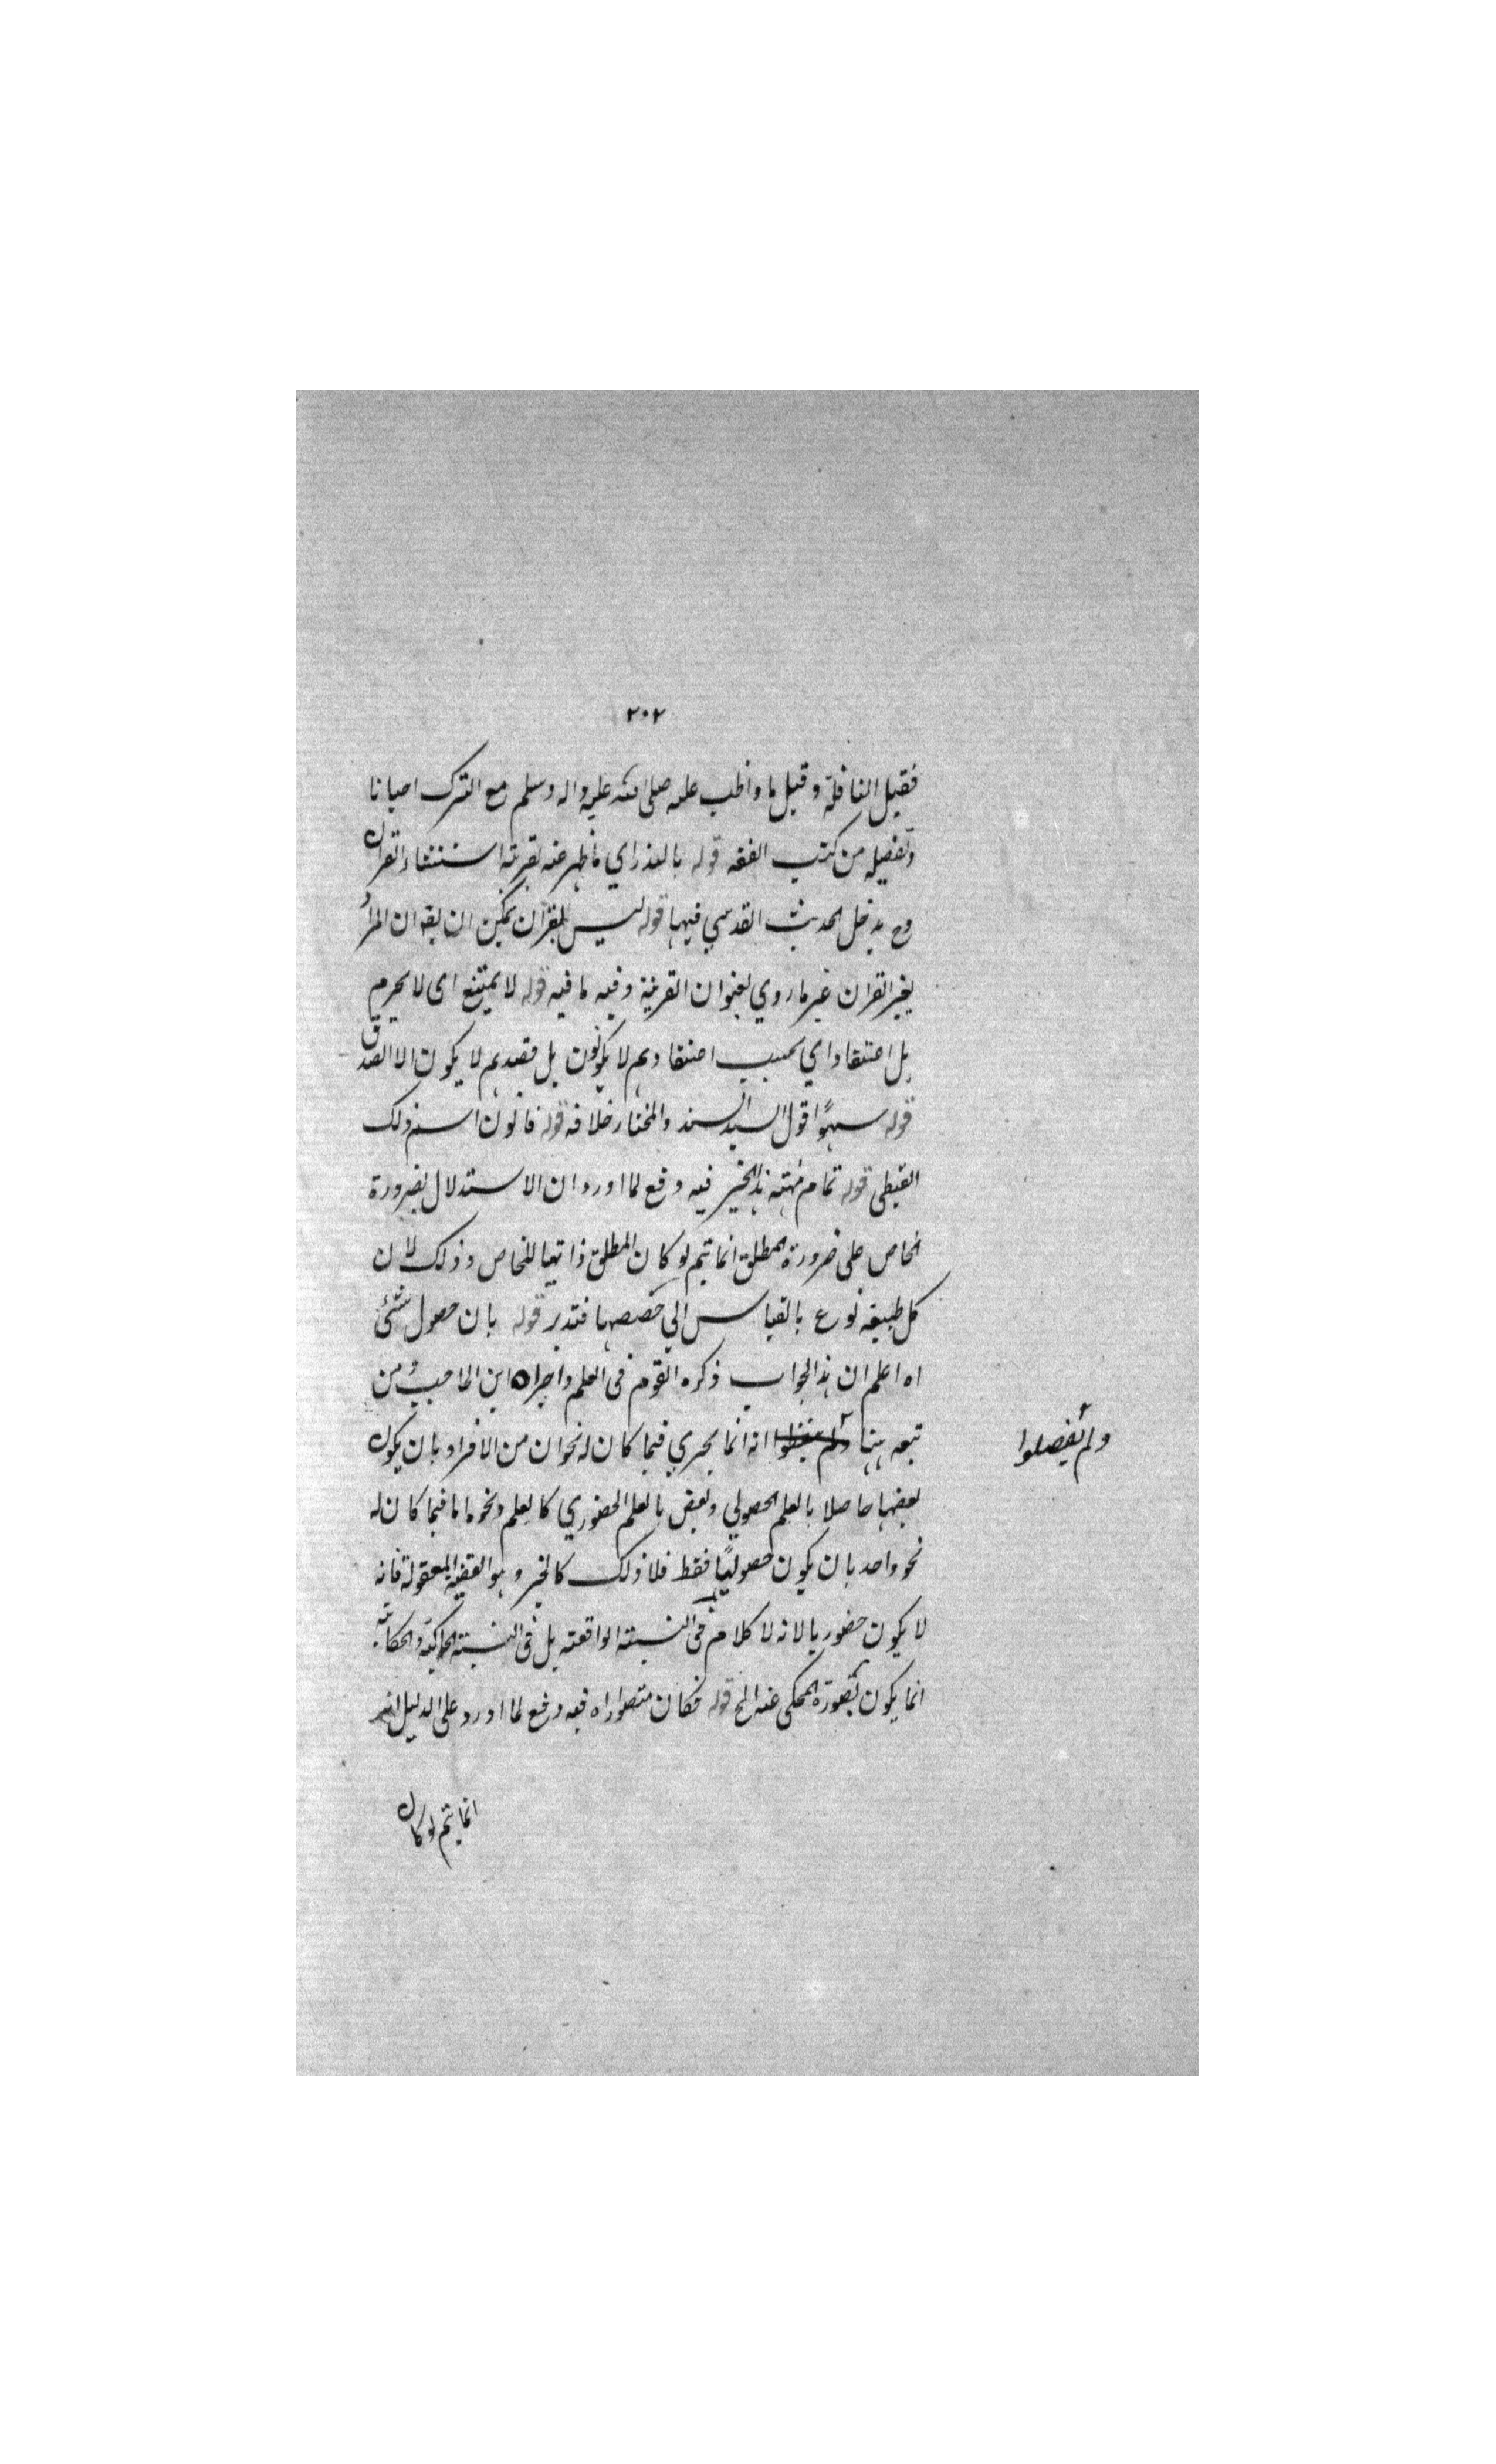 ٢٠٢
فقيل النافلة وقيل ما واظب عليه صلى الله عليه واله وسلم مع الترك احيانا
وتفصيله من كتب الفقه قوله بالعذر اي ما ظهر عنه بقرينة استثناء القران
وح يدخل الحديث القدسي فيها قوله ليس بقران يمكن ان يقه ان المراد
بغير القران غير ما روي بعنوان القرينة وفيه ما فيه قوله لا يمتنع اى لا يحرم
بل اعتقادا اي بحسب اعتقادهم لا يكونون بل قصدهم لا يكون الا الصدق
قوله سهوًا قول السيد السند والمختار خلافه قوله فانون اسم ذلك
القبطى قوله تمام مهية هذا الخبر فيه دفع لما اورد ان الاستدلال بضرورة
الخاص على ضرورة المطلق انما يتم لو كان المطلق ذاتيا للخاص وذلك لان
كل طبيعة نوع بالقياس الي حصصها فتدبر قوله بان حصول شئ
اه اعلم ان هذا الجواب ذكره القوم فى العلم واجراه ابن الحاجب ومن
تبعه ههنا انه انما يجري فيما كان له نحوان من الافراد بان يكون
ولم يفصلوا
بعضها حاصلا بالعلم الحصولي وبعض بالعلم الحضوري كالعلم ونحوه اما فيما كان له
نحو واحد بان يكون حصوليًا فقط فلا ذلك كالخبر وهو القضية المعقولة فانه
لا يكون حضوريا لانه لا كلام فى النسبة الواقعة بل فى النسبة الحاكية والحكاية
انما يكون بصورة المحكى عنه الخ قوله فكان متصورا اه فيه دفع لما اورد على الدليل
انما يتم لو كان